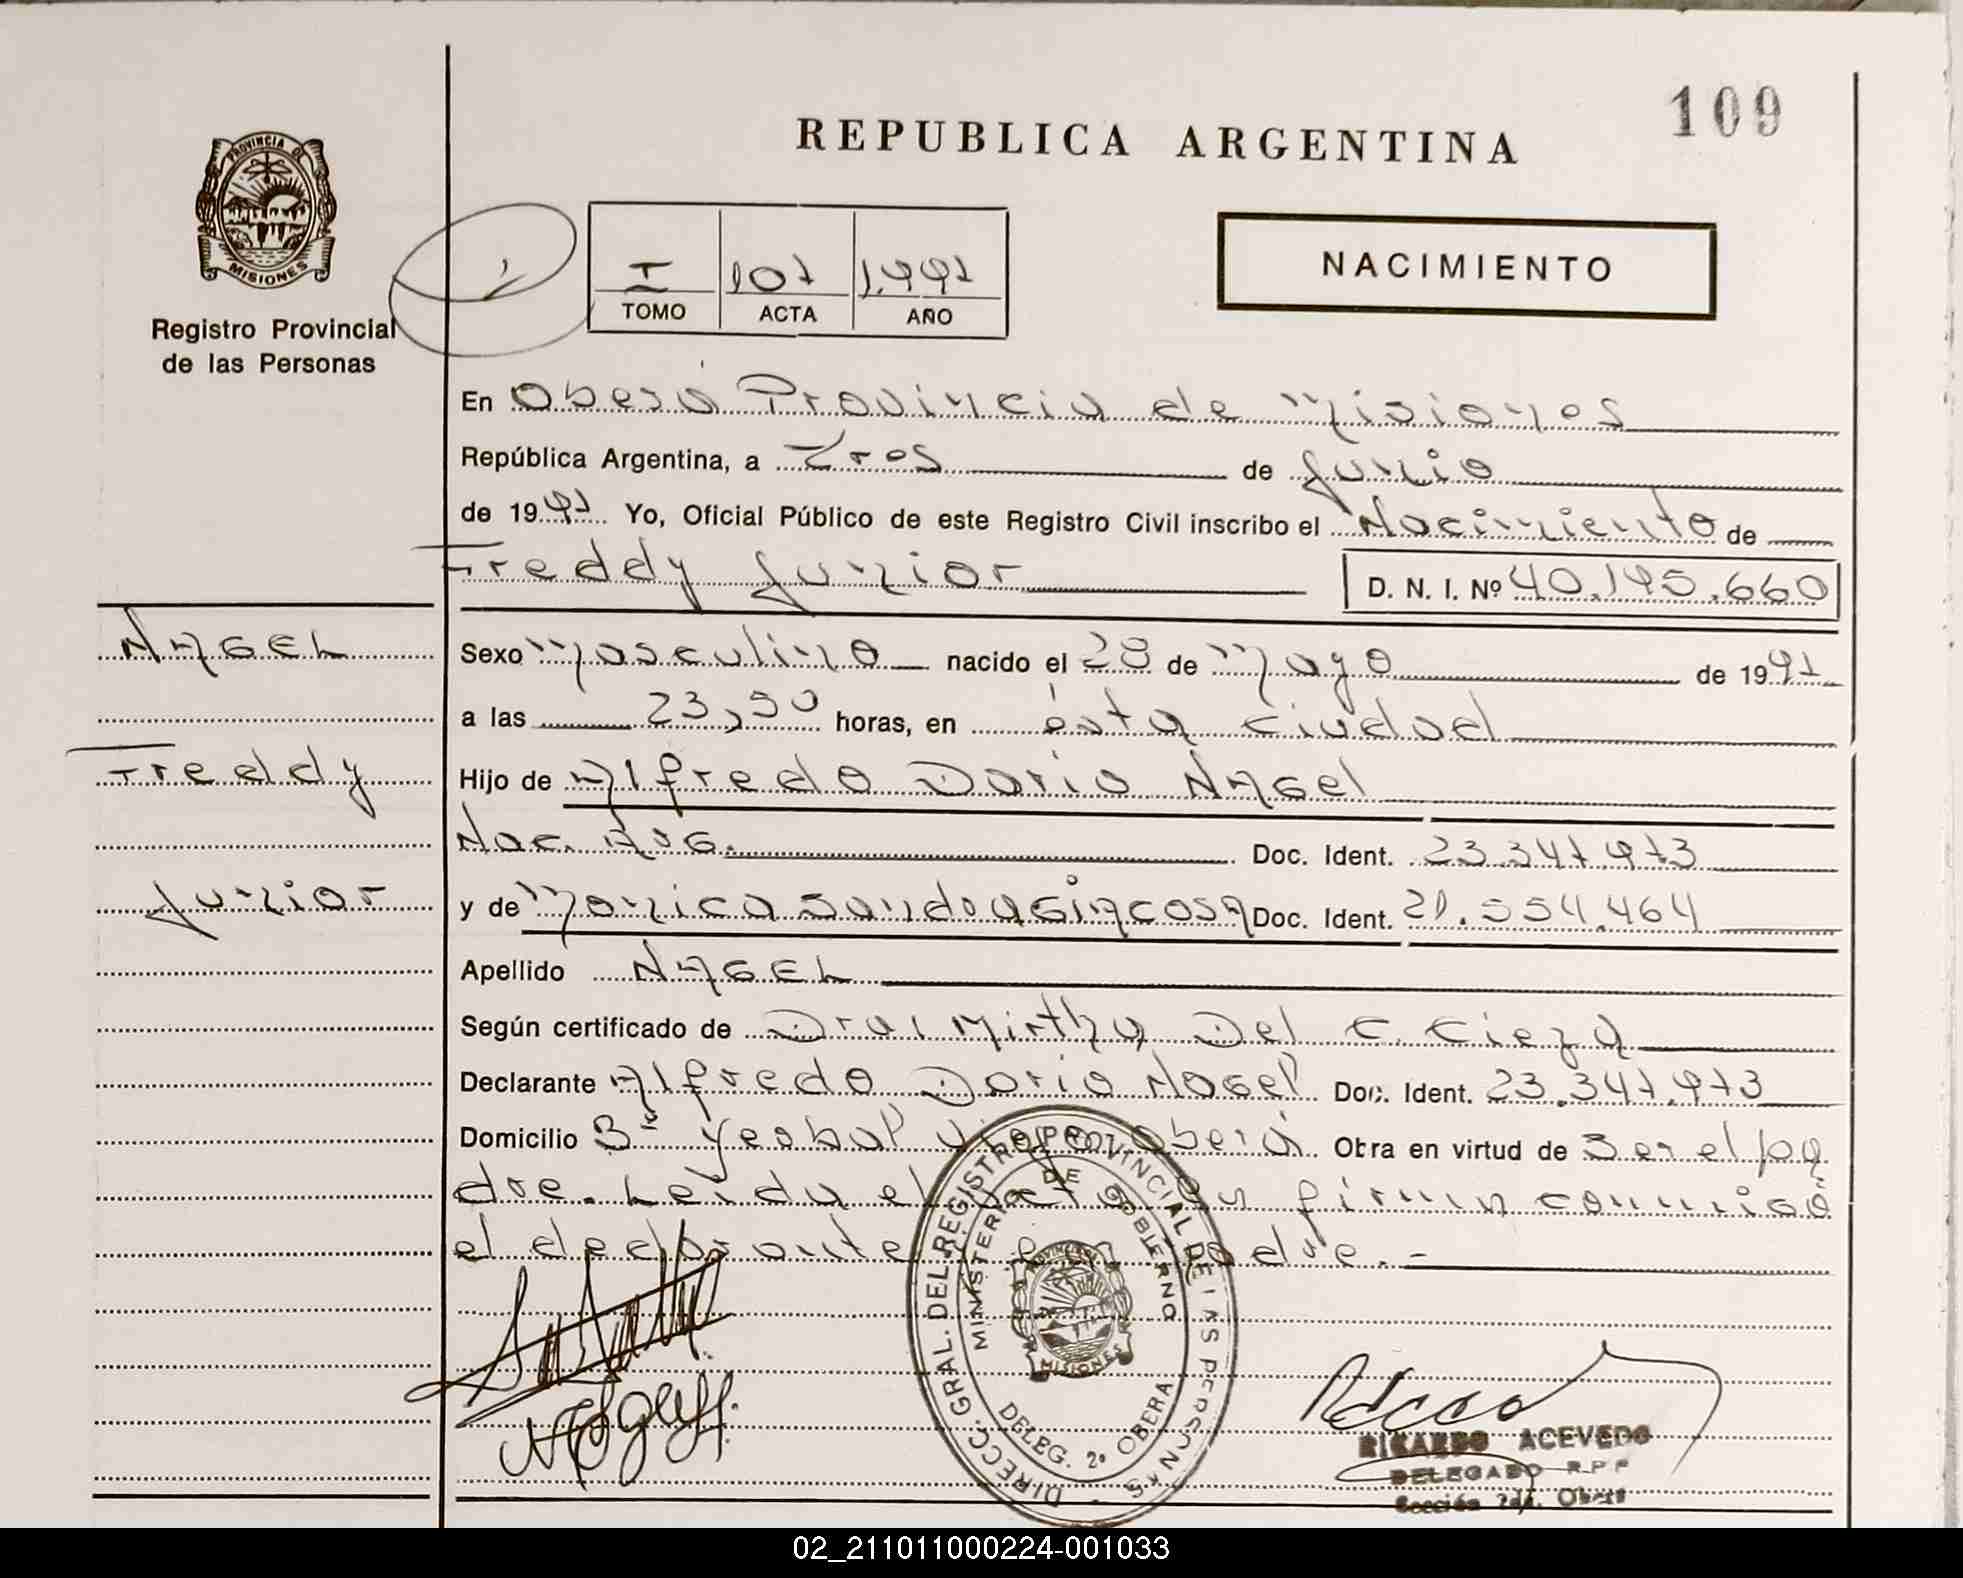 109
REPUBLICA ARGENTINA
PROVINCIA DE
MISIONES
Registro Provincial
de las Personas
I 107 1.997
TOMO ACTA AÑO
NACIMIENTO
En Oberá Provincia de Misiones
República Argentina, a Tres de Junio
de 1997 Yo, Oficial Público de este Registro Civil inscribo el Nacimiento de
Freddy Junior D. N. I. Nº 40.195.660
NAGEL
Sexo Masculino nacido el 28 de Mayo de 1997
a las 23,50 horas, en ésta Ciudad
Freddy
Hijo de Alfredo Dario NAGel
Nac. Arg. Doc. Ident. 23.347.973
Junior
y de Monica Sandra Doc. Ident. 21.554.464
Apellido NAGEL
Según certificado de Dra. Mirtha Del C. Cieza
Declarante Alfredo Dario Nagel Doc. Ident. 23.347.973
Domicilio Yerbal Oberá Obra en virtud de Ser el pa
dre. Leída el acta firman conmigo
el declarante
DIRECC. GRAL. DEL REGISTRO PROVINCIAL DE LAS PERSONAS
MINISTERIO DE GOBIERNO
PROVINCIA DE
MISIONES
DELEG. 2ª OBERA
RICARDO ACEVEDO
DELEGADO R.P.P
Sección 2da. Oberá
02_211011000224-001033